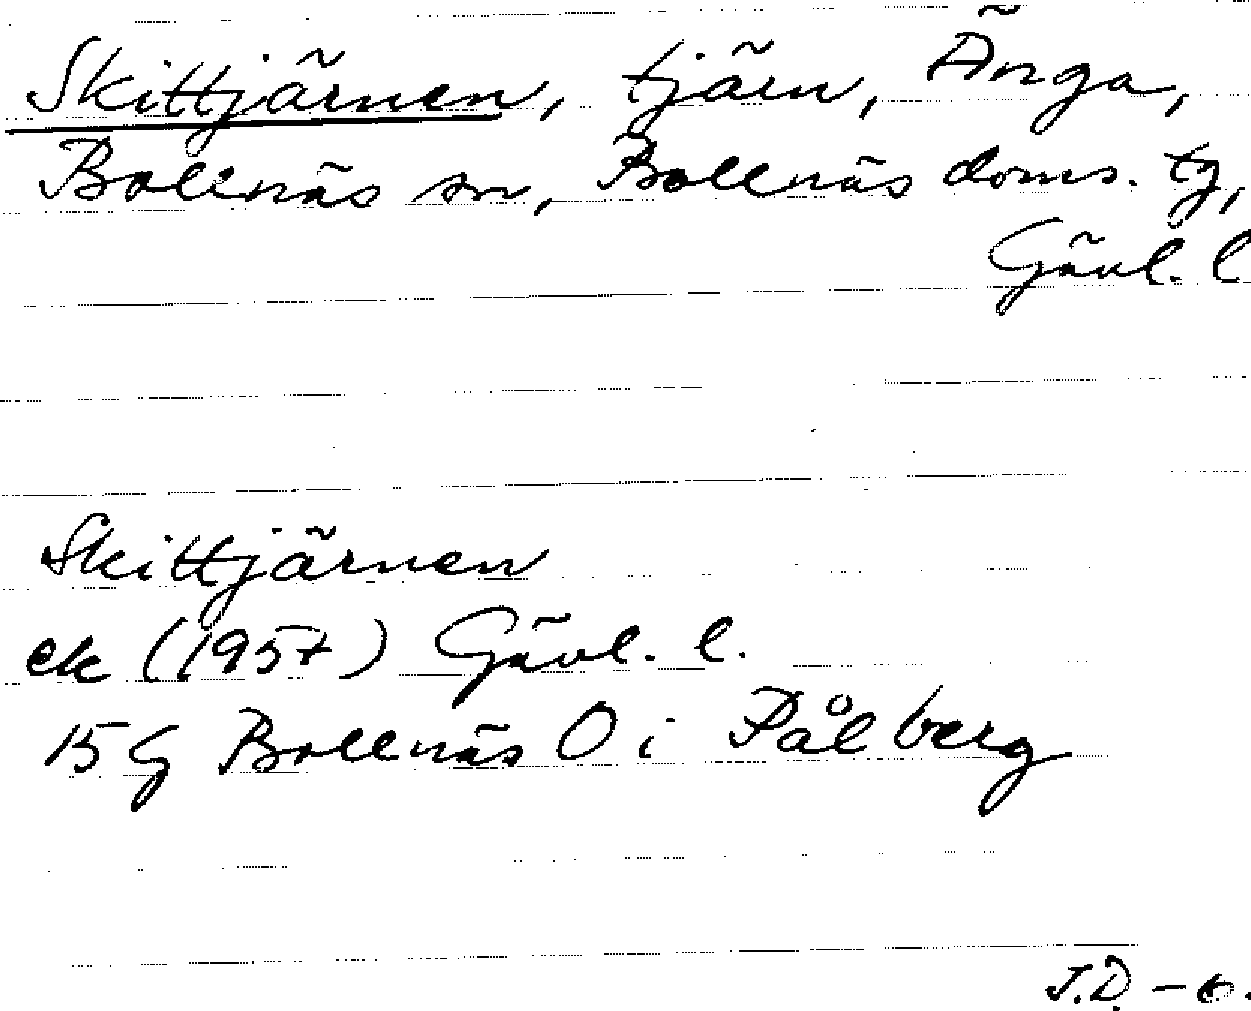 Skittjärnen, tjärn, Änga,
Bollnäs sn, Bollnäs doms. tg,
Gävl. l
Skittjärnen
ek (1957) Gävl. l.
15 G Bollnäs O i Pålberg
J.D.